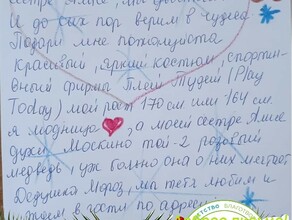 сестре Алисе, мы
И до сих пор верим в чудеса
Подари мне пожалуйста
красивый, яркий костюм, спортив-
вный фирмы Плей Тудей (Play
Today) мой рост 170 см или 164 см.
я модница, а моей сестре Алисе
духи Москино той-2 розовый
медведь, уж больно она о них мечтает
Дедушка Мороз, мы тебя любим и
ждем в гости по адресу